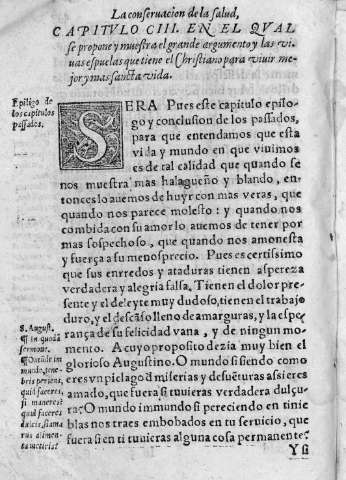 La conseruacion de la salud,
CAPITVLO CIII. EN EL QVAL
se propone y muestra el grande argumento y las vi-
uas espuelas que tiene el Christiano para viuir me-
jor y mas sancta vida.
Epiligo de
los capitulos
passados.
SERA Pues este capitulo epilo-
go y conclusion de los passados,
para que entendamos que esta
vida y mundo en que viuimos
es de tal calidad que quando se
nos muestra mas halagueño y blando, en-
tonces lo auemos de huyr con mas veras, que
quando nos parece molesto: y quando nos
combida con su amor lo auemos de tener por
mas sospechoso, que quando nos amonesta
y fuerça a su menosprecio. Pues es certissimo
que sus enrredos y ataduras tienen aspereza
verdadera y alegria falsa. Tienen el dolor pre-
sente y el deleyte muy dudoso, tienen el trabajo
duro, y el descãso lleno de amarguras, y la espe
rança de su felicidad vana, y de ningun mo-
mento. A cuyo proposito dezia muy bien el
glorioso Augustino. O mundo si siendo como
eres vn pielago đ miserias y desuẽturas assi eres
amado, que fuera si tuuieras verdadera dulçu-
ra? O mundo immundo si pereciendo en tinie
blas nos traes embobados en tu seruicio, que
fuera si en ti tuuieras alguna cosa permanente?
Y si
S. August.
in quodã
sermone.
mundo, tene
bris periens,
quid faceres